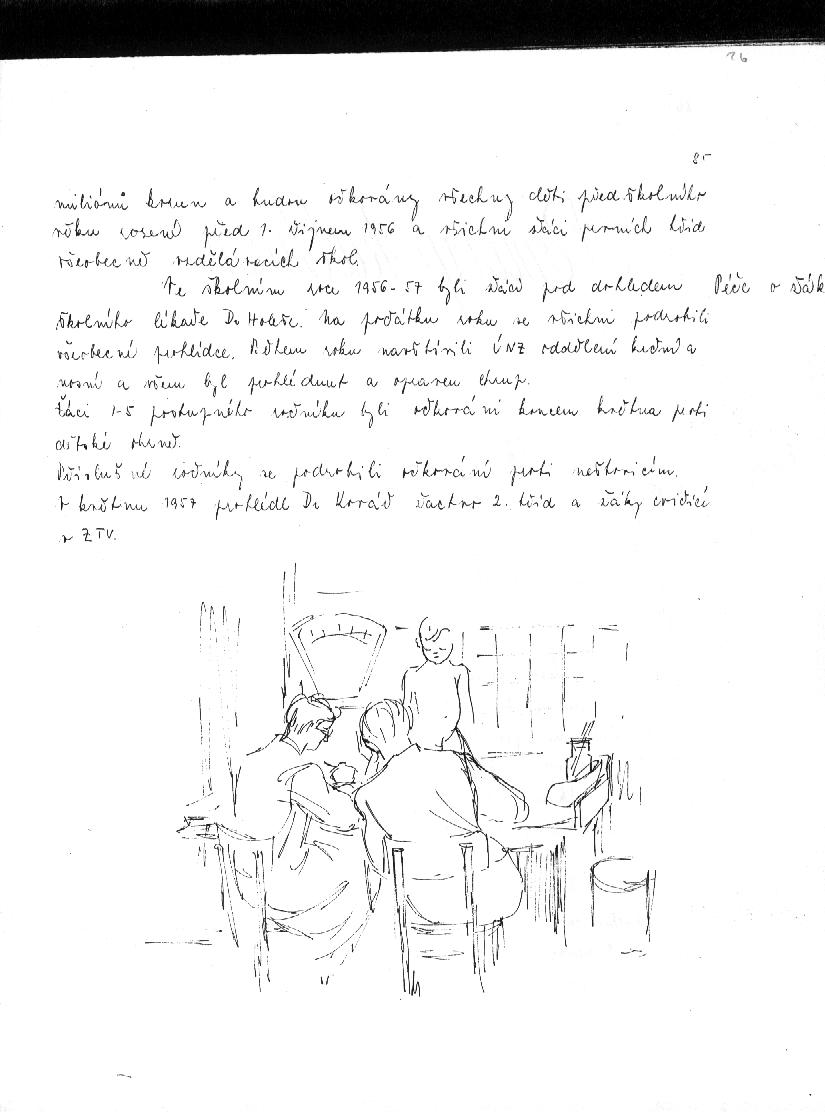 26
85
miliónů korun a budou očkovány všechny děti předškolního
věku rození před 1. říjnem 1956 a všichni žáci prvních tříd
všeobecně vzdělávacích škol.
Ve školním roce 1956-57 byli žáci pod dohledem Péče o žák
školního lékaře Dr Holeše. Na počátku roku se všichni podrobili
všeobecné prohlídce. Během roku navštívili ÚNZ oddělení krční a
nosní a všem byl prohlédnut a opraven chrup.
Žáci 1-5 postupného ročníku byli očkováni koncem května proti
dětské obrně.
Příslušné ročníky se podrobili očkování proti neštovicím.
V květnu 1957 prohlédl Dr Kovář žactvo 2. tříd a žáky cvičící
v ZTV.